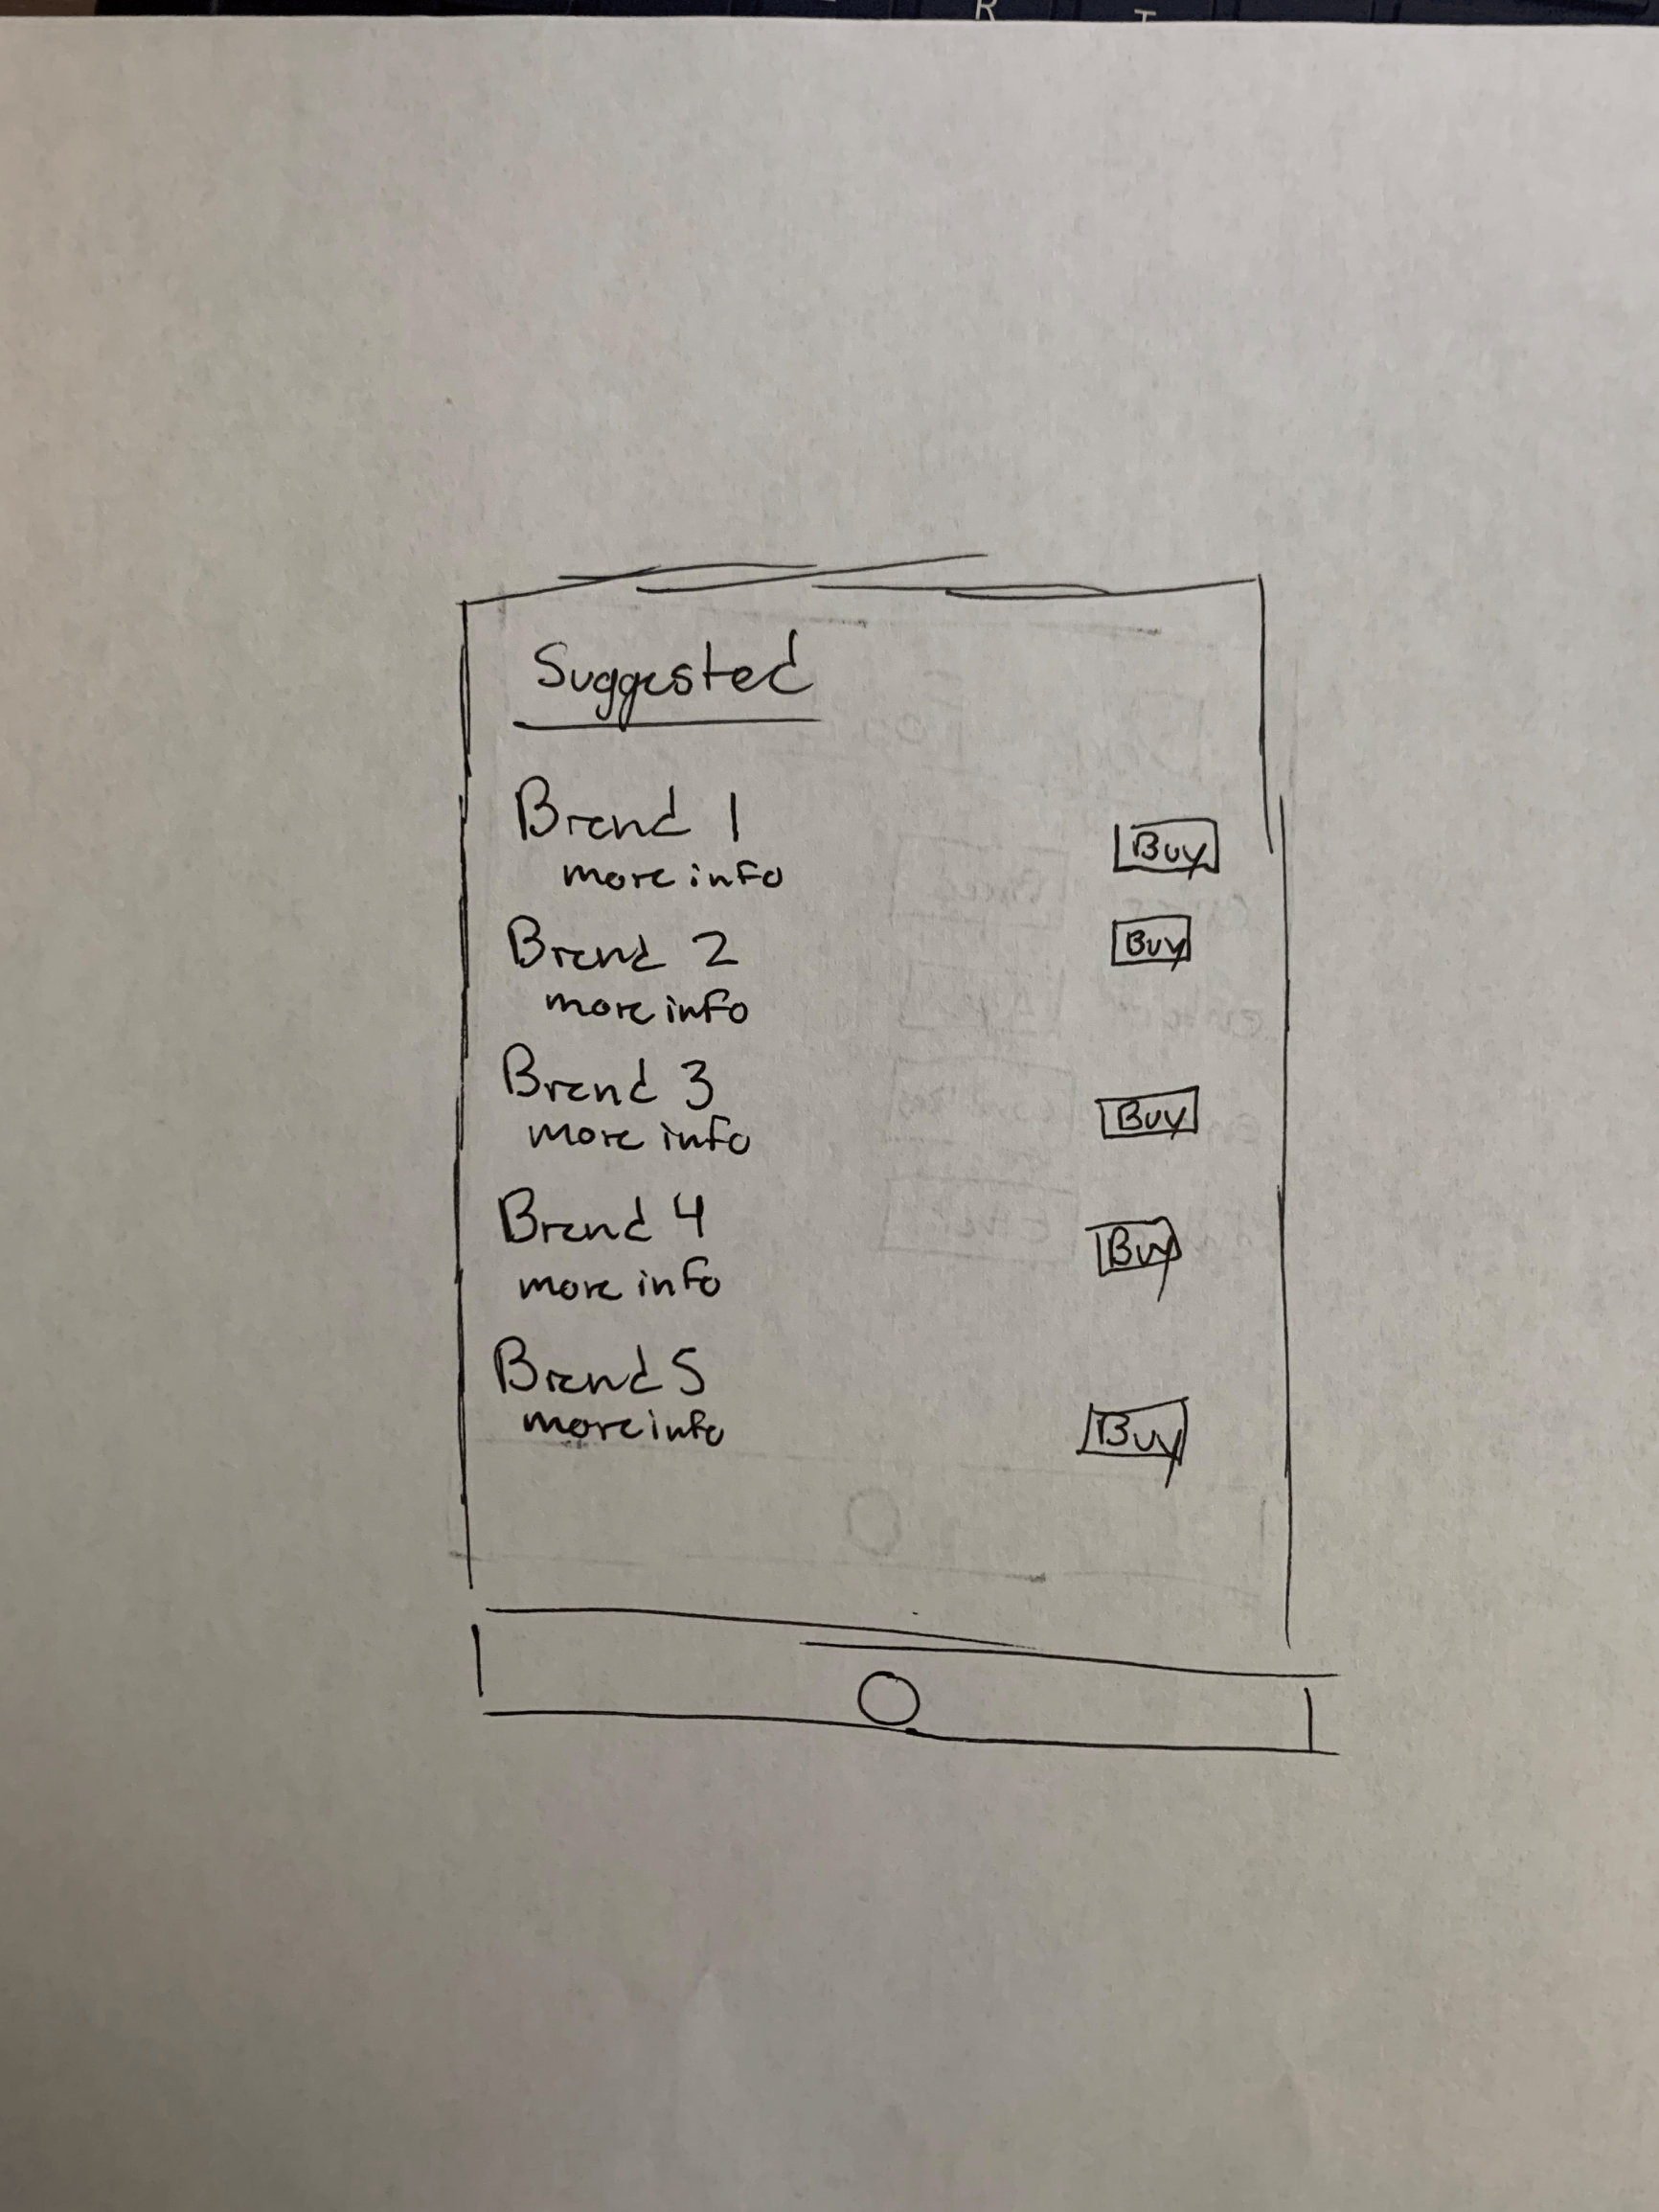 R T
Suggested
Brand 1
more info
Buy
Brand 2
more info
Buy
Brand 3
more info
Buy
Brand 4
more info
Buy
Brand 5
more info
Buy